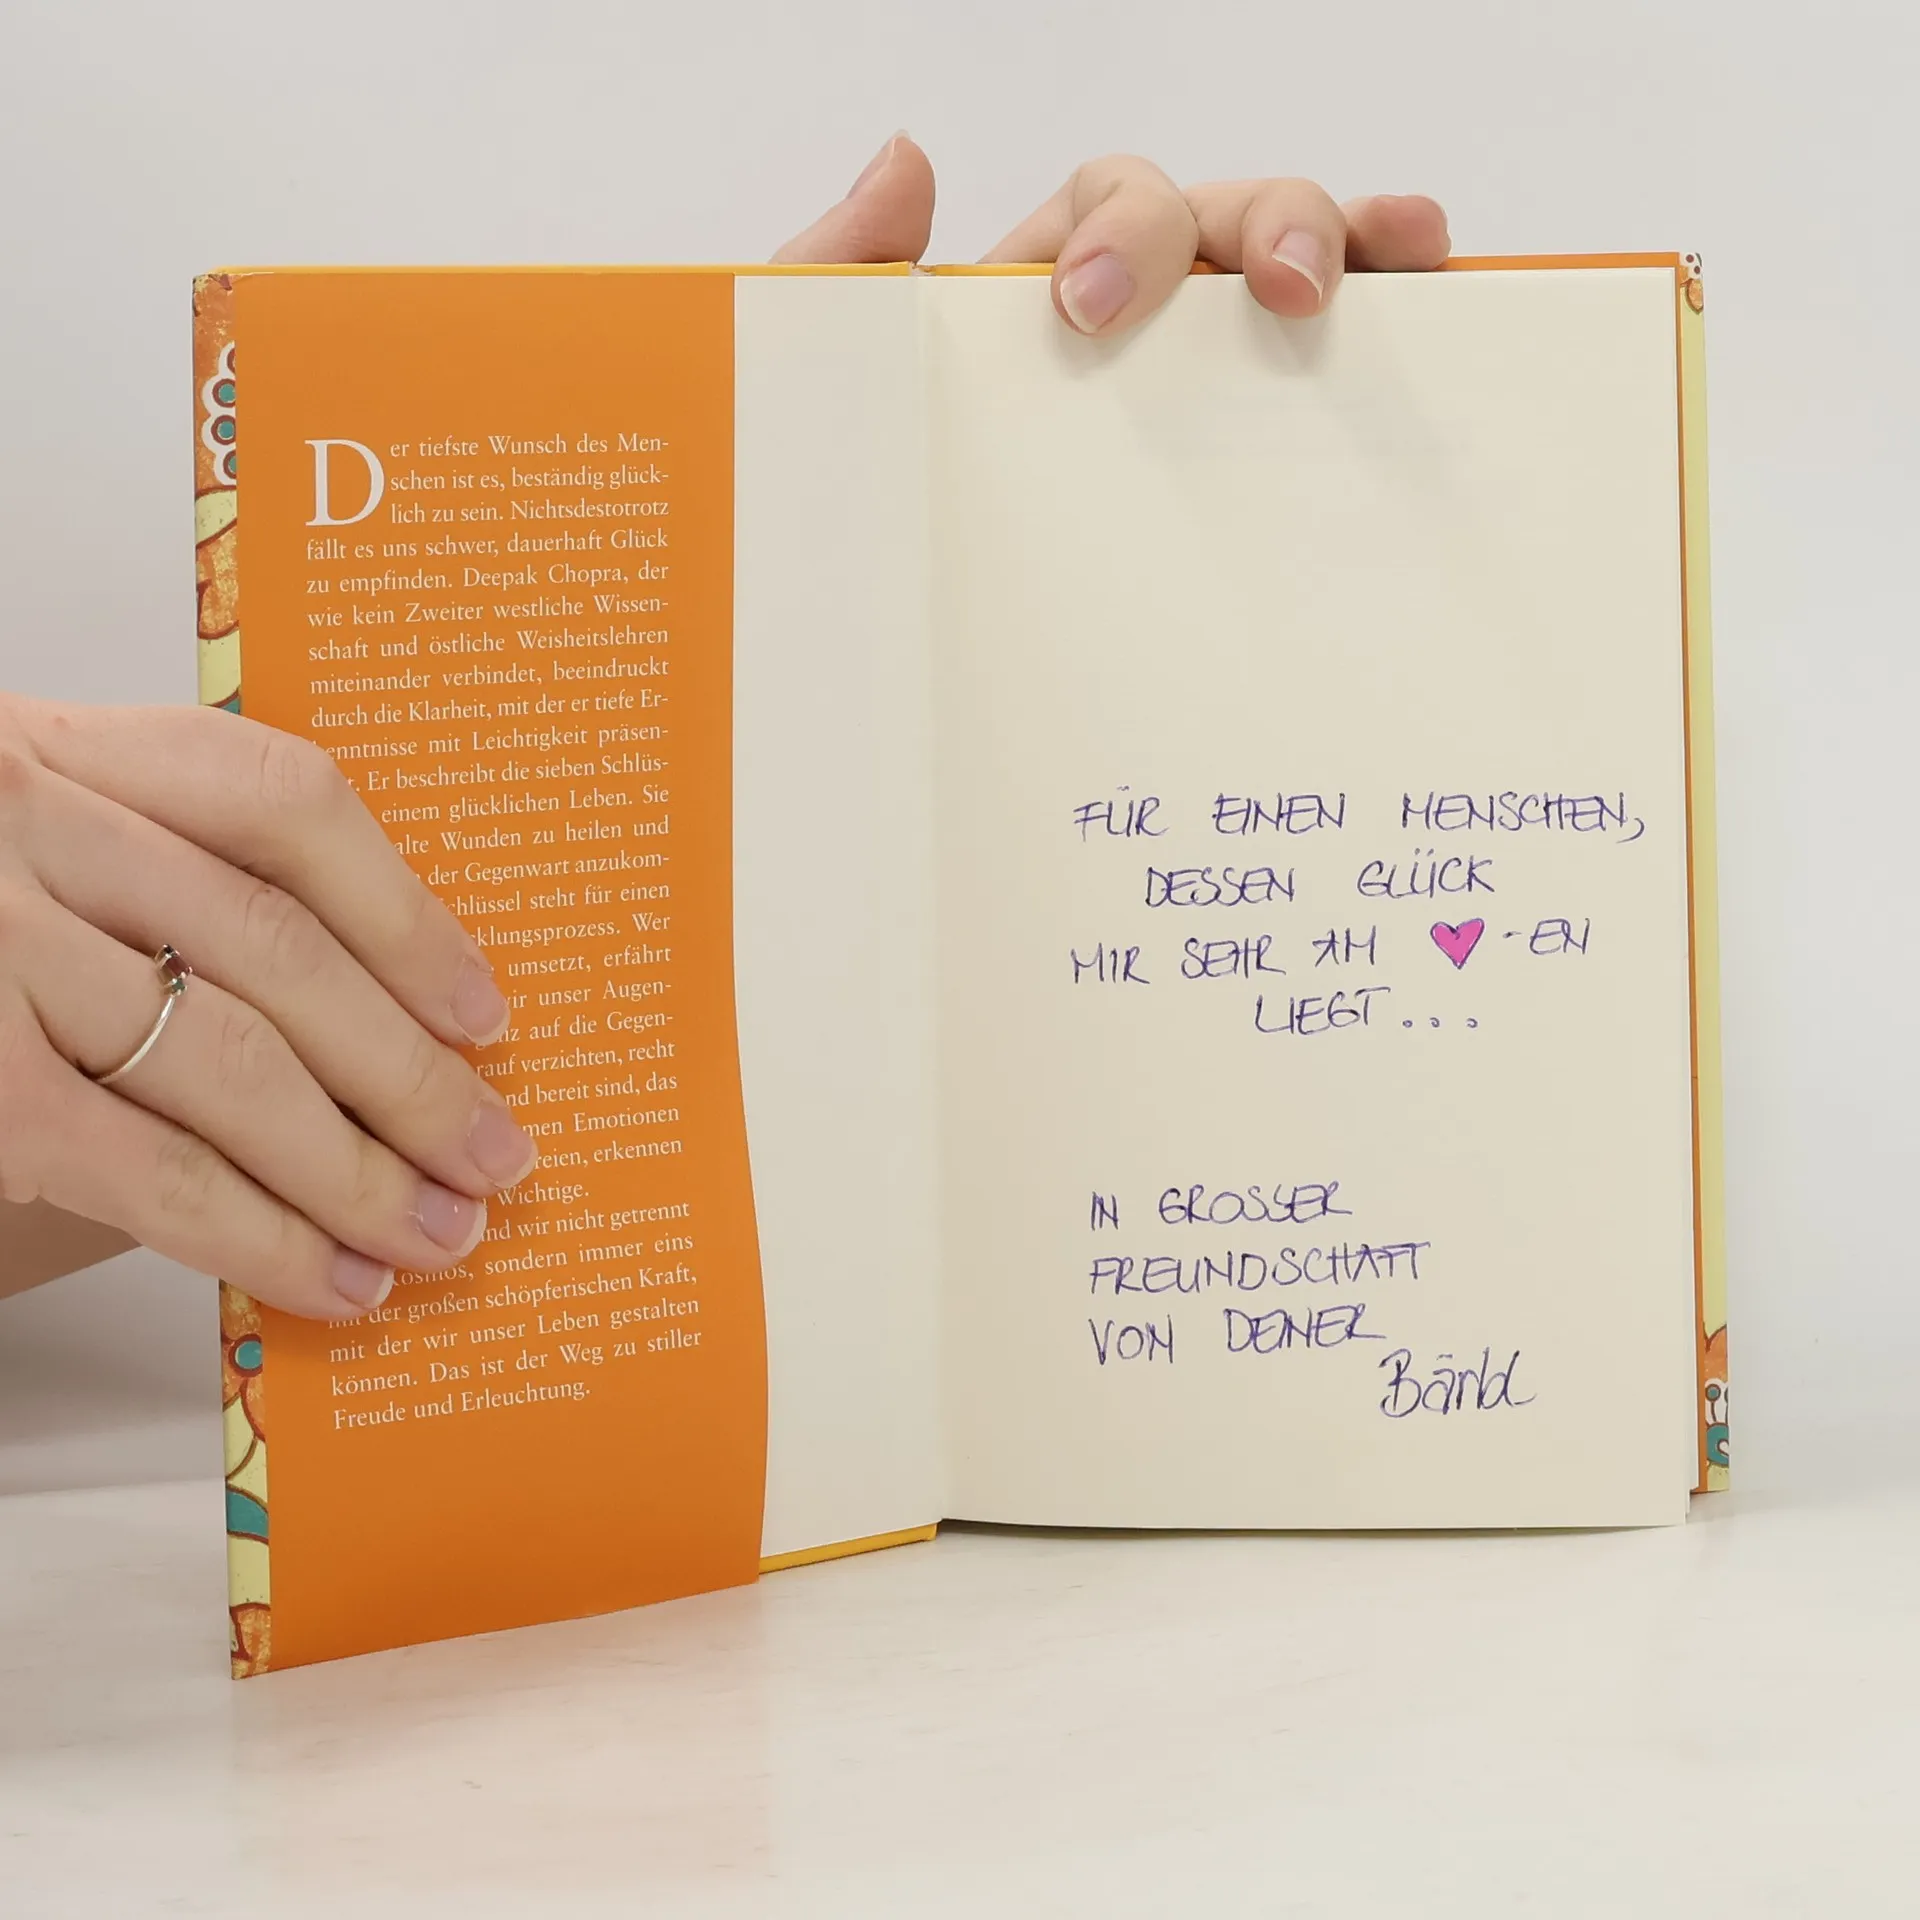 Der tiefste Wunsch des Men-
schen ist es, beständig glück-
lich zu sein. Nichtsdestotrotz
fällt es uns schwer, dauerhaft Glück
zu empfinden. Deepak Chopra, der
wie kein Zweiter westliche Wissen-
schaft und östliche Weisheitslehren
miteinander verbindet, beeindruckt
durch die Klarheit, mit der er tiefe Er-
enntnisse mit Leichtigkeit präsen-
t. Er beschreibt die sieben Schlüs-
einem glücklichen Leben. Sie
alte Wunden zu heilen und
der Gegenwart anzukom-
chlüssel steht für einen
klungsprozess. Wer
umsetzt, erfährt
wir unser Augen-
nz auf die Gegen-
rauf verzichten, recht
nd bereit sind, das
men Emotionen
reien, erkennen
Wichtige.
ind wir nicht getrennt
Kosmos, sondern immer eins
mit der großen schöpferischen Kraft,
mit der wir unser Leben gestalten
können. Das ist der Weg zu stiller
Freude und Erleuchtung.
FÜR EINEN MENSCHEN,
DESSEN GLÜCK
MIR SEHR AM ♥-EN
LIEGT...
IN GROSSER
FREUNDSCHAFT
VON DEINER
Bärbl